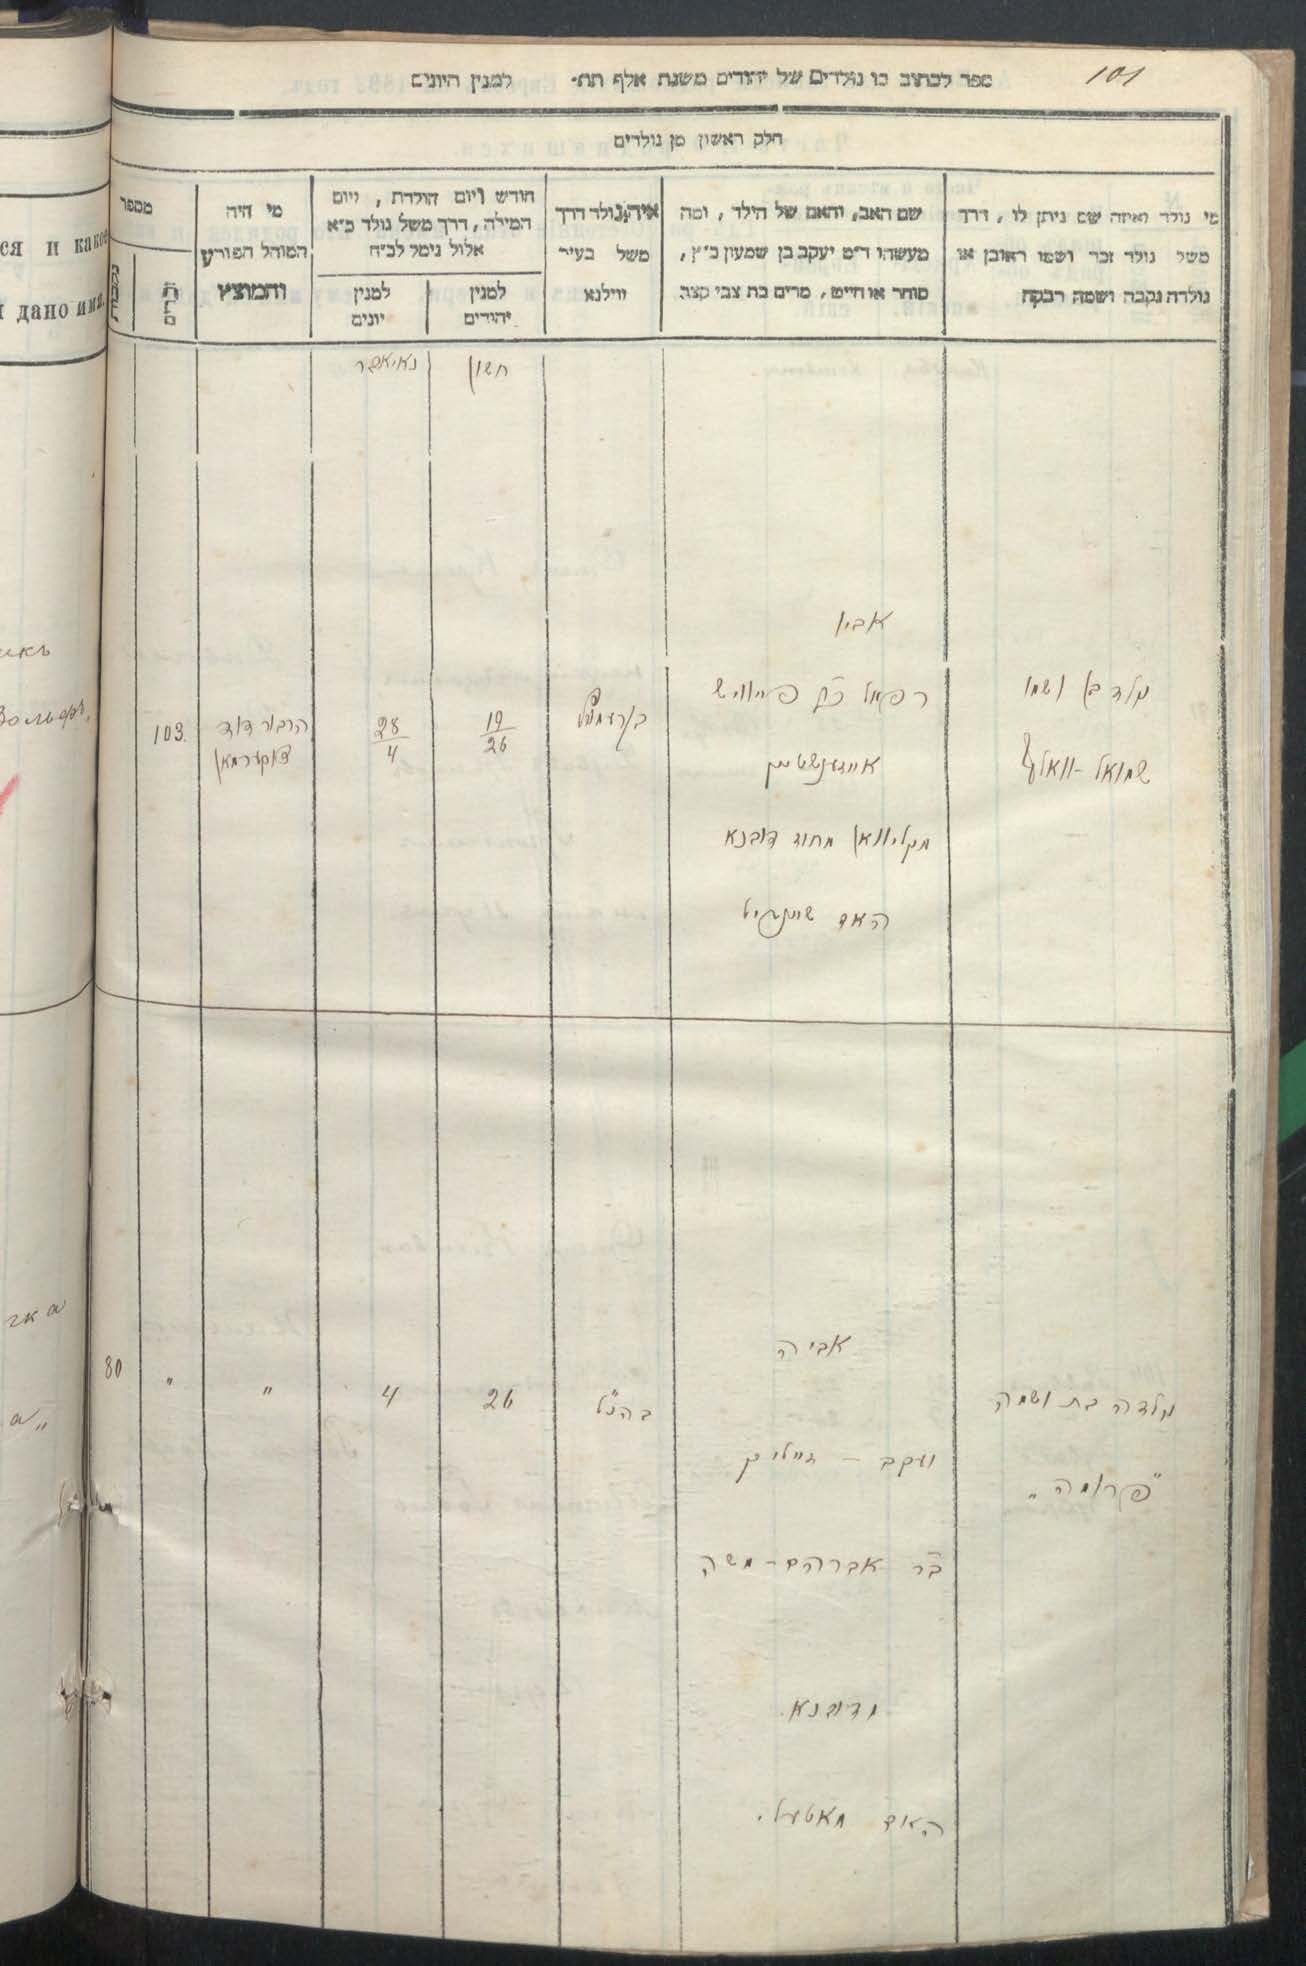 101
ספר לכתוב בו נולדים של יהודים משנת אלף תת׳ למנין היונים
חלק ראשון מן נולדים
מי נולד ואיזה שם ניתן לו, דרך
משל נולד זכר ושמו ראובן או
נולדה נקבה ושמה רבקה
שם האב, והאם של הילד, ומה
מעשהו ד״מ יעקב בן שמעון כ״ץ,
סוחר או חייט, מרים בת צבי קצב
איה נולד דרך
משל בעיר
ווילנא
חודש ויום הולדת, ויום
המילה, דרך משל נולד כ״א
אלול נימל לכ״ח
למנין
יהודים
למנין
יונים
מי היה
המוהל הפורע
והמוצץ
מספר
זכרים
נקבות
חשון
נאיאבר
נולד בן ושמו
שמואל-וואלף
אביו
רפאל פייוויש
מחוז דובנא
האם
19
26
28
4
הרב ר דוד
צוקערמאן
103.
נולדה בת ושמה
"פרומה"
אביה
יעקב -
ב״ר אברהם-משה
מדובנא.
האם מאטעל.
בהנ״ל
26
4
"
"
80
ся и какое
дано имя